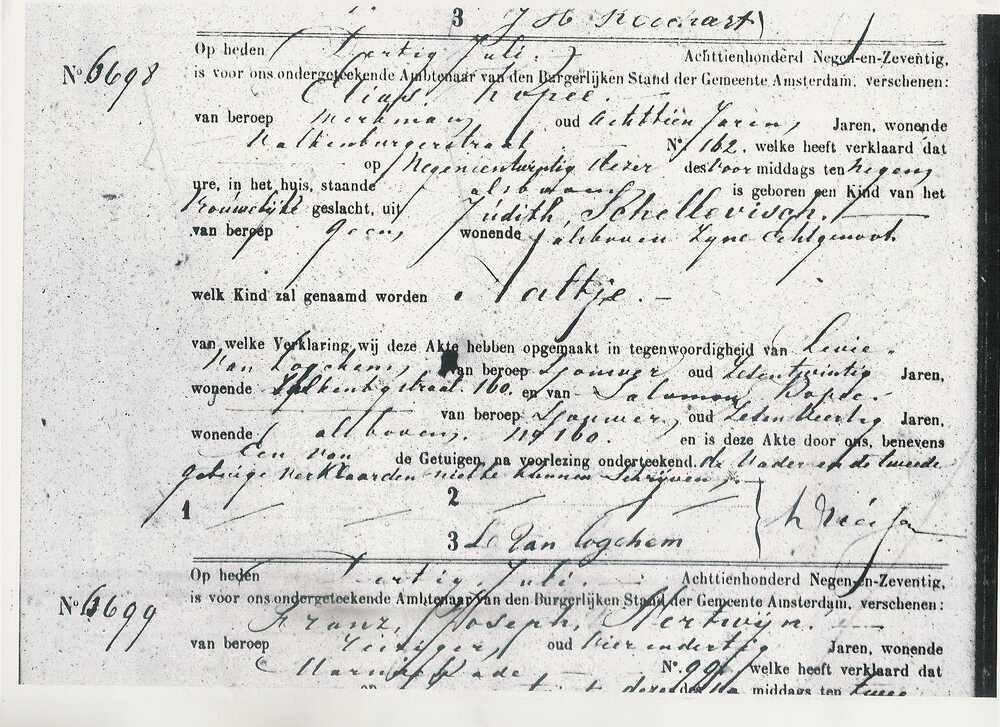 3 J H Reichardt
Op heden Dertig Juli. Achttienhonderd Negen-en-Zeventig,
No 6698 is voor ons ondergeteekende Ambtenaar van den Burgerlijken Stand der Gemeente Amsterdam, verschenen:
Elias Kopee.
van beroep Werkman, oud Achttien Jaren, Jaren, wonende
Valkenburgerstraat No. 162, welke heeft verklaard dat
op Negenentwintig dezer des Voor middags ten Negen
ure, in het huis, staande alsboven is geboren een Kind van het
Vrouwelijke geslacht, uit Judith Schellevisch.
van beroep geen, wonende alsboven Zyne Echtgenoot
welk Kind zal genaamd worden Naltje.
van welke Verklaring wij deze Akte hebben opgemaakt in tegenwoordigheid van Levie
Van Logchem, van beroep Sjouwer oud Zesentwintig Jaren,
wonende Valkenbgstraat 160. en van Salomon Kopee.
van beroep Sjouwer, oud Zesenveertig Jaren,
wonende alsboven, No 160. en is deze Akte door ons, benevens
Een van de Getuigen, na voorlezing onderteekend. de Vader en de tweede
getuige verklaarden niet te kunnen Schrijven.
1 2
3 L Van Logchem
Op heden Dertig Juli. Achttienhonderd Negen-en-Zeventig,
No 6699 is voor ons ondergeteekende Ambtenaar van den Burgerlijken Stand der Gemeente Amsterdam, verschenen:
Franz Joseph Hertwijn.
van beroep Reiziger, oud Vierendertig Jaren, wonende
Marnixkade No. 99, welke heeft verklaard dat
op dezer des Na middags ten twee